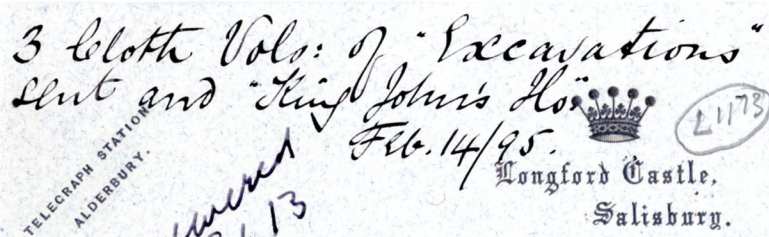 3 Cloth Vols: of "Excavations"
sent and "King John's Ho"
Feb. 14/95.
L1173
TELEGRAPH STATION
ALDERBURY.
Longford Castle,
Salisbury.
13